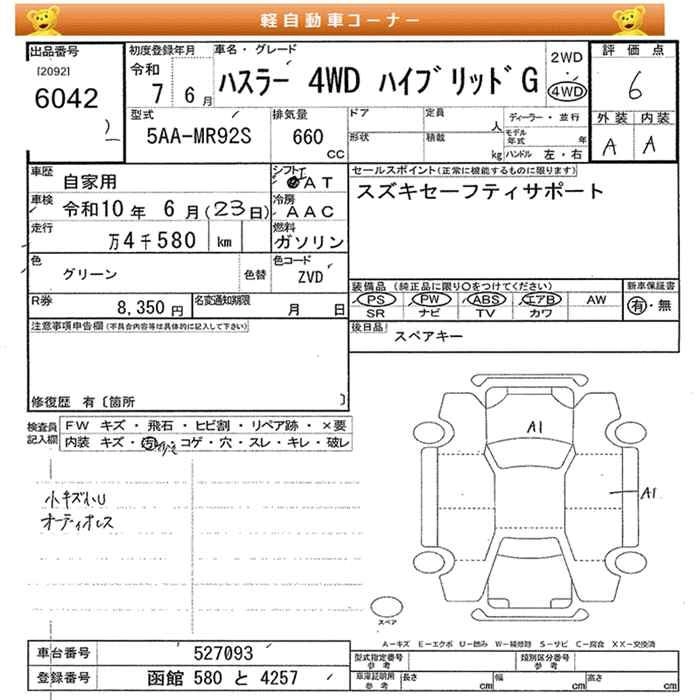 軽自動車コーナー
出品番号
[2092]
6042
初度登録年月
令和
7 6月
車名・グレード
ハスラー 4WD ハイブリッドG
2WD
・
4WD
評価点
6
外装 内装
A A
型式
5AA-MR92S
排気量
660
CC
ドア
形状
定員
人
積載
kg
ディーラー・並行
モデル年式
年
ハンドル 左・右
車歴
自家用
シフト
AT
車検
令和10年 6月(23日)
冷房
AAC
走行
万4千580 km
燃料
ガソリン
色
グリーン
色替
色コード
ZVD
R券
8,350円
名変通知期限
月 日
セールスポイント(正常に機能するものに限ります)
スズキセーフティサポート
装備品 (純正品に限り○をつけてください)
PS PW ABS エアB AW
SR ナビ TV カワ
新車保証書
有・無
後日品
スペアキー
注意事項申告欄(不具合内容等は具体的に記入して下さい)
修復歴 有〔箇所 〕
検査員記入欄
FW キズ・飛石・ヒビ割・リペア跡・×要
内装 キズ・汚・コゲ・穴・スレ・キレ・破レ
小キズ小U
オーディオレス
A1
A1
スペア
A−キズ E−エクボ U−凹み W−補修跡 S−サビ C−腐食 XX−交換済
車台番号
527093
登録番号
函館 580 と 4257
型式指定番号
参考
類別区分番号
参考
車庫証明用
参考
長さ cm
幅 cm
高さ cm